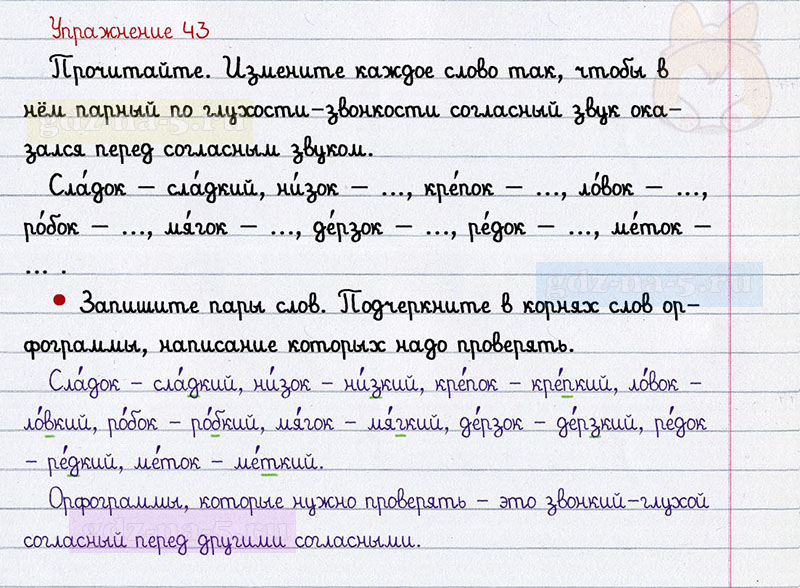 Упражнение 43
Прочитайте. Измените каждое слово так, чтобы в
нём парный по глухости-звонкости согласный звук ока-
зался перед согласным звуком.
Сла́док – сла́дкий, ни́зок – ..., кре́пок – ..., ло́вок – ...,
ро́бок – ..., мя́гок – ..., де́рзок – ..., ре́док – ..., ме́ток –
... .
• Запишите пары слов. Подчеркните в корнях слов ор-
фограммы, написание которых надо проверять.
Сла́док – сла́дкий, ни́зок – ни́зкий, кре́пок – кре́пкий, ло́вок –
ло́вкий, ро́бок – ро́бкий, мя́гок – мя́гкий, де́рзок – де́рзкий, ре́док
– ре́дкий, ме́ток – ме́ткий.
Орфограммы, которые нужно проверять – это звонкий-глухой
согласный перед другими согласными.
gdz-na-5.ru
gdz-na-5.ru
gdz-na-5.ru